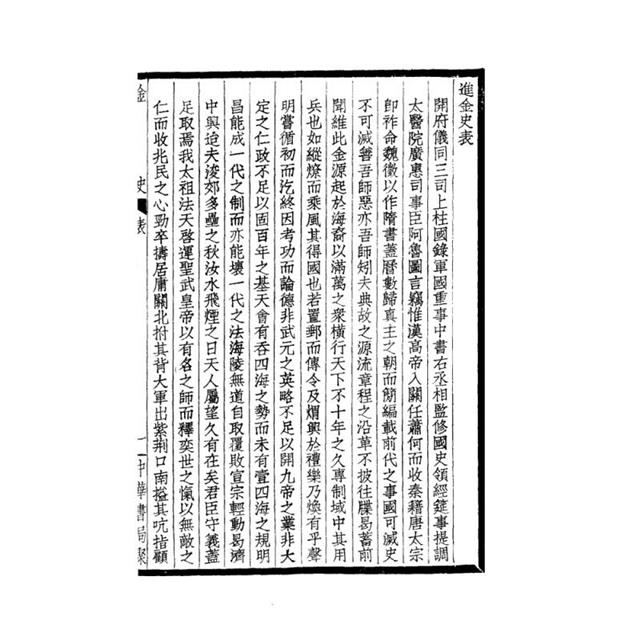 進金史表
開府儀同三司上柱國錄軍國重事中書右丞相監修國史領經筵事提調
太醫院廣惠司事臣阿魯圖言竊惟漢高帝入關任蕭何而收秦籍唐太宗
即祚命魏徵以作隋書蓋曆數歸真主之朝而簡編載前代之事國可滅史
不可滅善吾師惡亦吾師矧夫典故之源流章程之沿革不披往牒曷蓄前
聞維此金源起於海裔以滿萬之衆橫行天下不十年之久專制域中其用
兵也如縱燎而乘風其得國也若置郵而傳令及煟興於禮樂乃煥有乎聲
明嘗循初而汔終因考功而論德非武元之英略不足以開九帝之業非大
定之仁政不足以固百年之基天會有吞四海之勢而未有壹四海之規明
昌能成一代之制而亦能壞一代之法海陵無道自取覆敗宣宗輕動曷濟
中興迨夫浚郊多壘之秋汝水飛煙之日天人屬望久有在矣君臣守義蓋
足取焉我太祖法天啓運聖武皇帝以有名之師而釋奕世之愾以無敵之
仁而收兆民之心勁卒擣居庸關北拊其背大軍出紫荆口南搤其吭指顧
金 史 表 一 中華書局聚